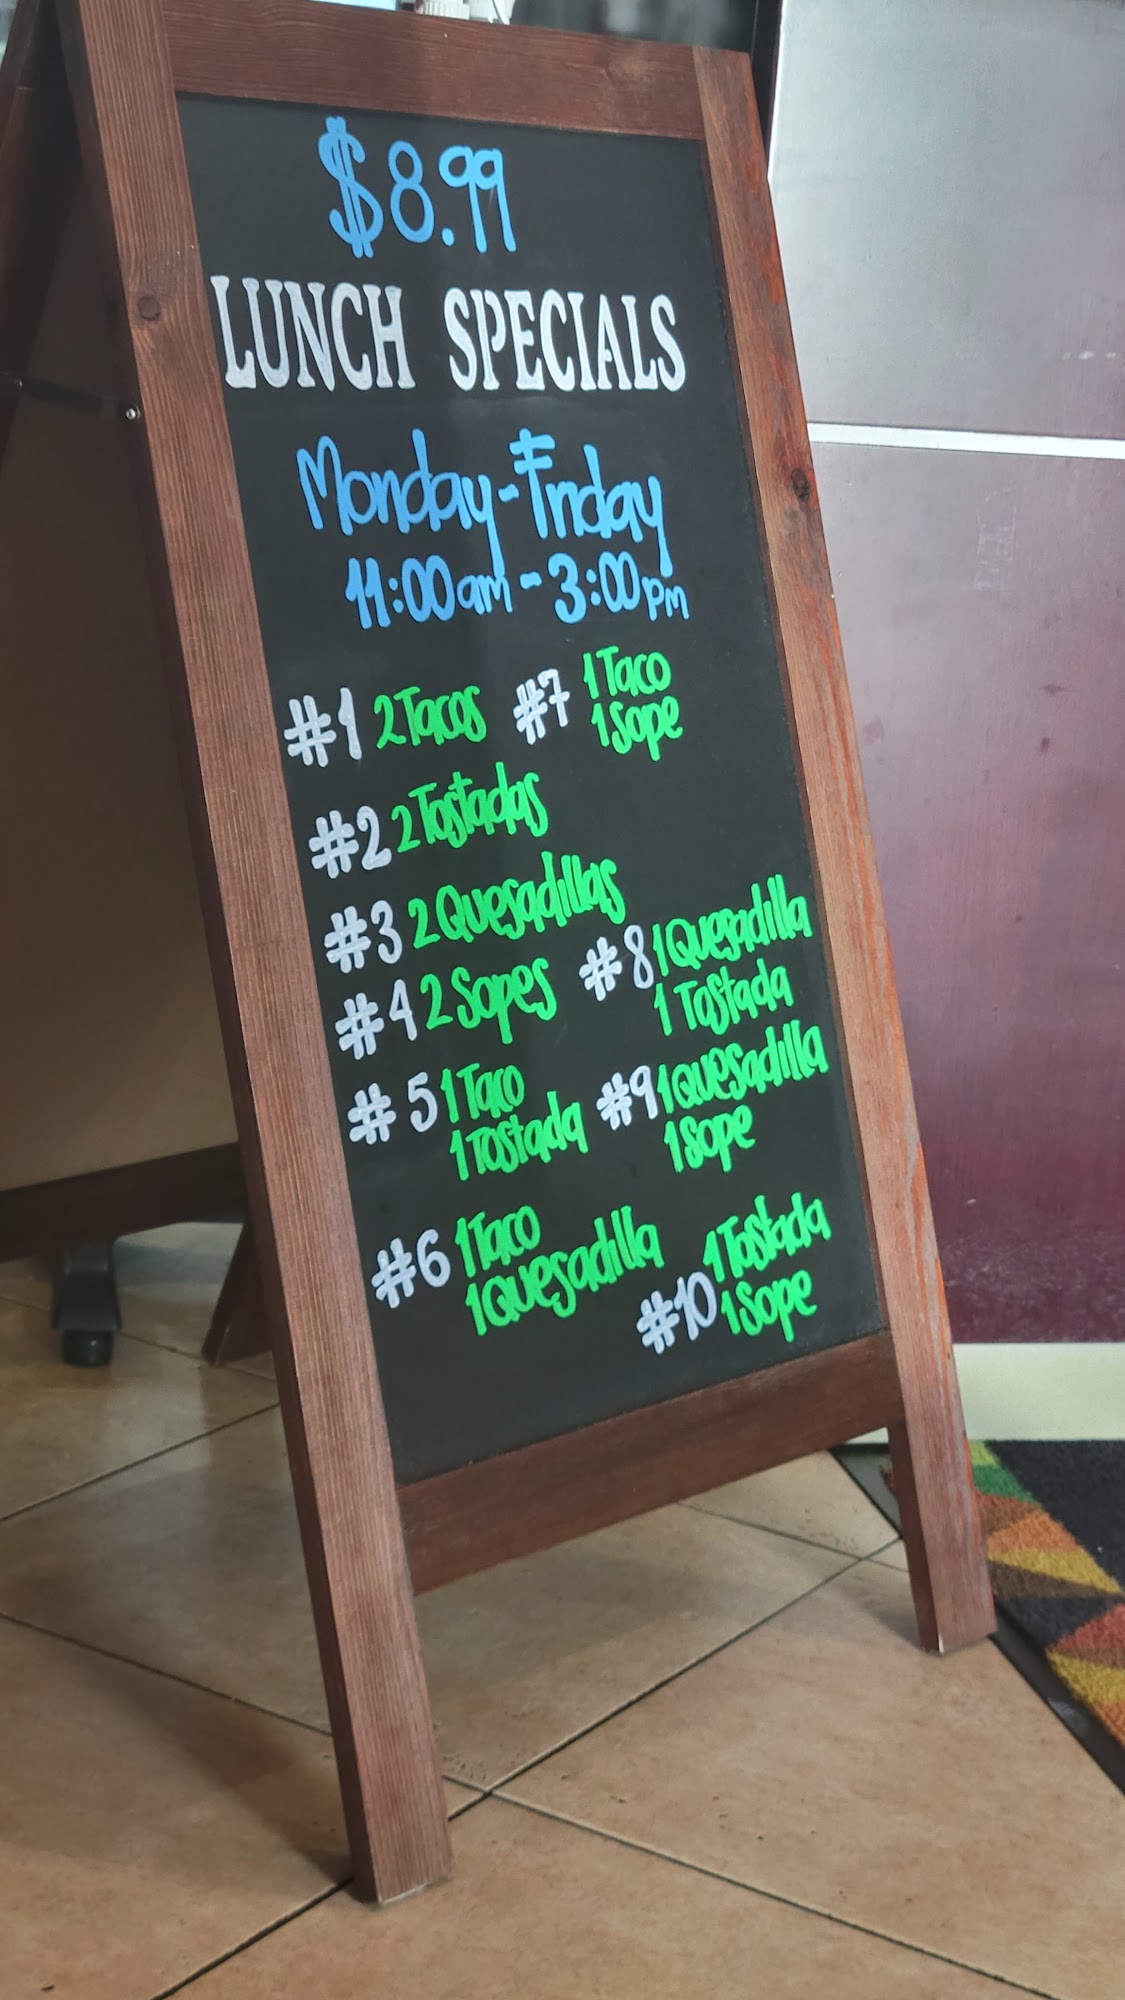 $8.99
LUNCH SPECIALS
Monday-Friday
11:00am - 3:00pm
#1 2 Tacos
#2 2 Tostadas
#3 2 Quesadillas
#4 2 Sopes
#5 1 Taco
1 Tostada
#6 1 Taco
1 Quesadilla
#7 1 Taco
1 Sope
#8 1 Quesadilla
1 Tostada
#9 1 Quesadilla
1 Sope
#10 1 Tostada
1 Sope